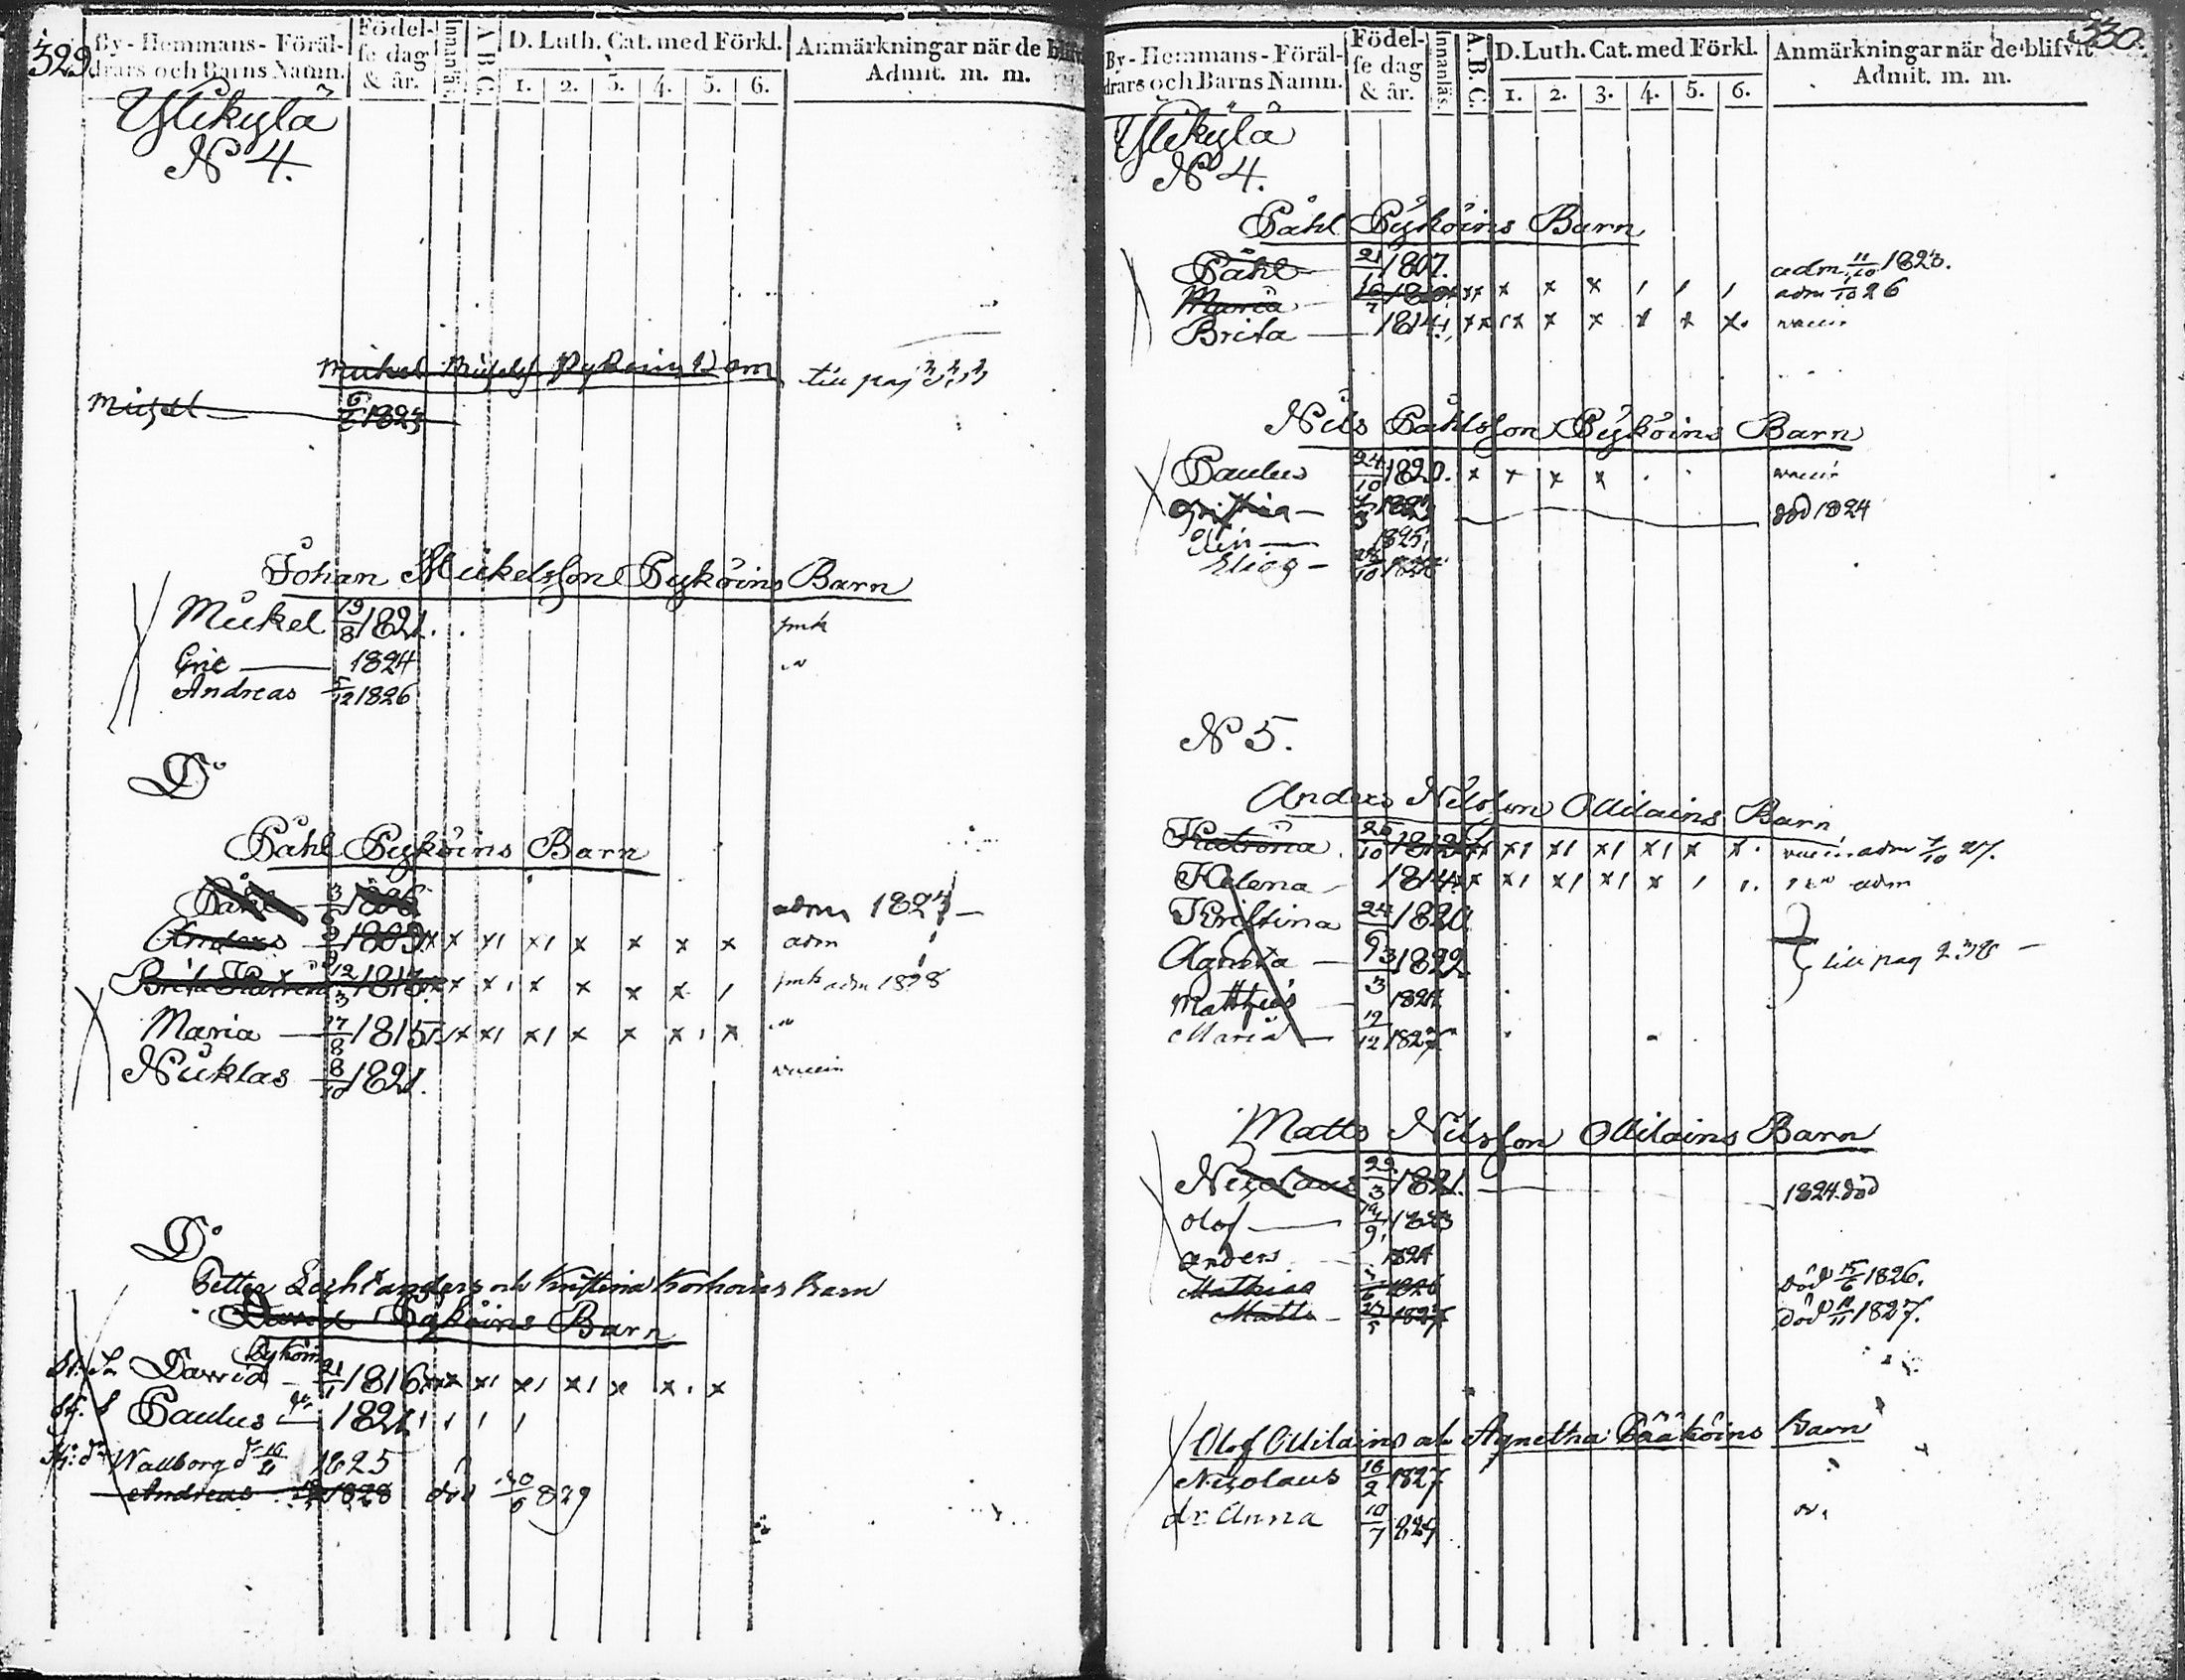 329
By-Hemmans-Föräl-
drars och Barns Namn.
Födel-
se dag
& år.
Innanläs.
A B C.
D. Luth. Cat. med Förkl.
1. 2. 3. 4. 5. 6.
Anmärkningar när de blifvit
Admit. m. m.
Ylikylä
N 4.
till pag 333
Michel 6/6 1823
Johan Mickelsson Pyköins Barn
Mickel 19/8 1821.
Eric 1824
Andreas 5/12 1826
Do
Påhl Pyköins Barn
Påhl 3/6 1806 adm 1823
Anders 1809 x x x x x x x x adm
Brita Katrina 12/3 1813 adm 1828
Maria 27/8 1815
Nicklas 8/10 1821. vaccin
Do
Petter och Kristina Korhoins Barn
David Pyköins Barn
Pyköin
David 21/1 1816
Paulus do 1821
Wallborg 1825
Andreas 1828 död 20/6 829
330.
By-Hemmans-Föräl-
drars och Barns Namn.
Födel-
se dag
& år.
Innanläs.
A. B. C.
D. Luth. Cat. med Förkl.
1. 2. 3. 4. 5. 6.
Anmärkningar när de blifvit
Admit. m. m.
Ylikylä
No 4.
Påhl Pyköins Barn
Påhl 21/1 1807. adm. 11/10 1823.
Maria adm 1/10 26
Brita 1814. vaccin
Nils Påhlsson Pyköins Barn
Paulus 24/10 1820. x x x x vaccin
död 1824
Elin 1825
Elias
N 5.
Anders Nilsson Ollilains Barn
Katrina 26/10 1812 vaccin adm 7/10 27.
Helena 1814 adm
Kristina 24/9 1820
Agneta 3/3 1822 till pag 238
Matthias 1824
Maria 12/12 1827
Matts Nilsson Ollilains Barn
Nicolaus 22/3 1821. 1824. död
Olof 1823
Anders 1824
Mathias 1826 död 15/6 1826.
Matts 27/5 1827 död 11/11 1827.
Olof Ollilains och Agnetha Pääköins Barn
Nicolaus 16/2 1827
dr Anna 10/7 829